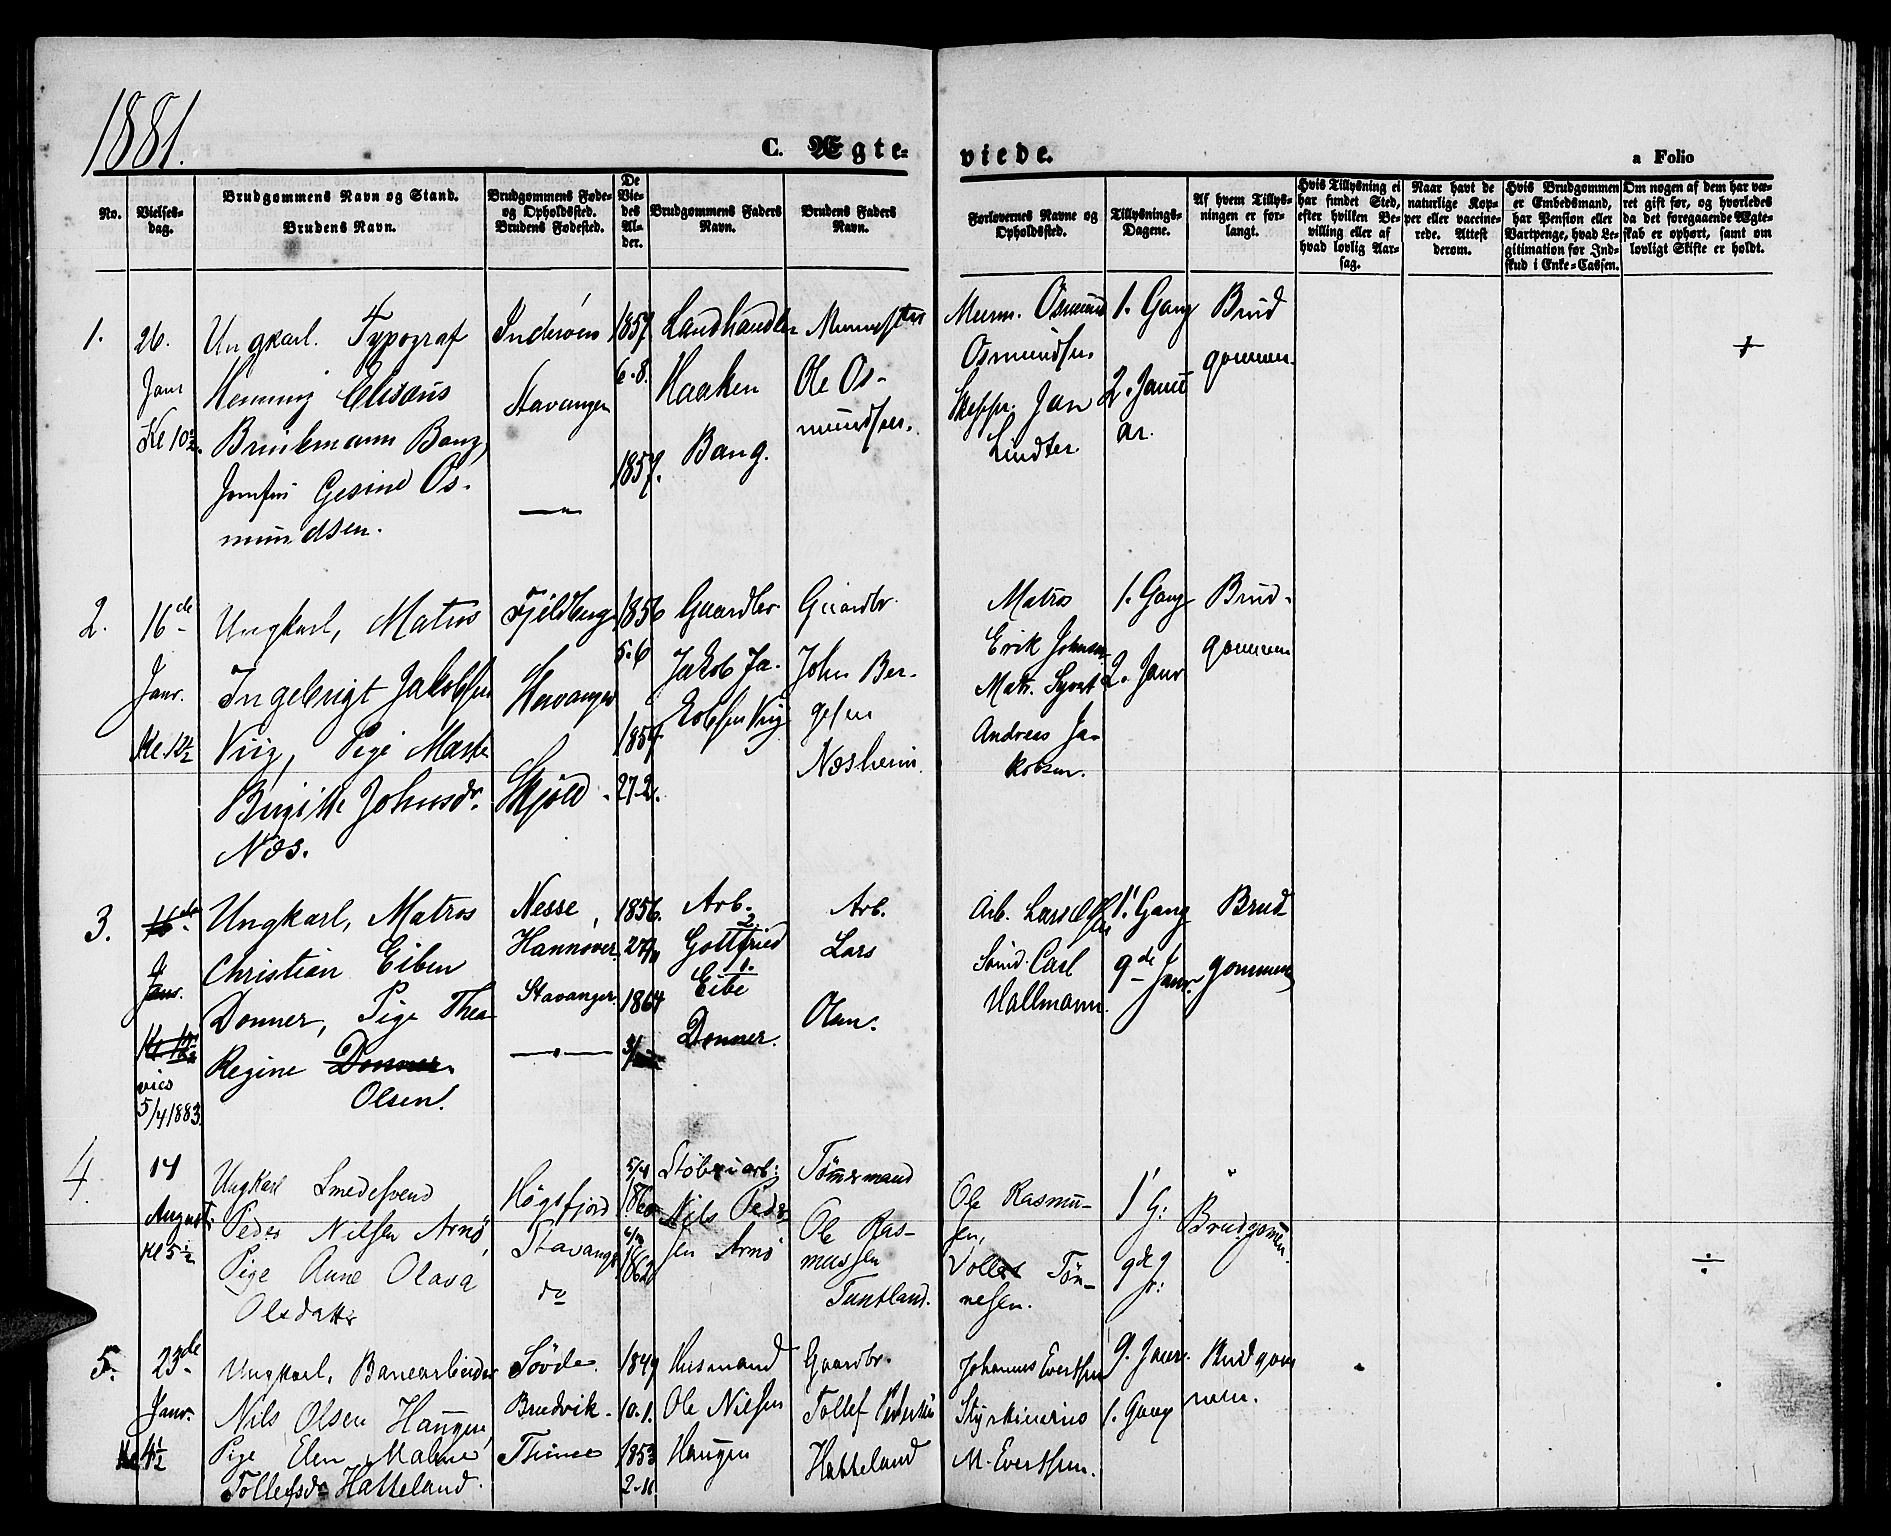 1881.
C. Ægte-
viede.
a Folio
No.
Vielses-
dag.
Brudgommens Navn og Stand.
Brudens Navn.
Brudgommens Føde-
og Opholdssted.
Brudens Fødested.
De
Vie-
des
Al-
der.
Brudgommens Faders
Navn.
Brudens Faders
Navn.
Forlovernes Navne og
Opholdssted.
Tillysnings-
Dagene.
Af hvem Tillys-
ningen er for-
langt.
Hvis Tillysning ei
har fundet Sted,
efter hvilken Be-
villing eller af
hvad lovlig Aar-
sag.
Naar havt de
naturlige Kop-
per eller vaccine-
rede. Attest
derom.
Hvis Brudgommen
er Embedsmand,
har Pension eller
Vartpenge, hvad Le-
gitimation for Ind-
skud i Enke-Cassen.
Om nogen af dem har væ-
ret gift før, og hvorledes
da det foregaaende Ægte-
skab er ophørt, samt om
lovligt Skifte er holdt.
1.
26.
Janr
Kl 10½.
Ungkarl. Typograf
Henning Elisæus
Brinkmann Bang,
Jomfru Gesine Os-
mundsen.
Inderøen
Stavanger
—"—
1857
6-8.
1857.
Landhandler
Haaken
Bang.
Ole Os-
mundsen.
Murm. Osmund
Osmundsen
Skipspr. Jan
Lindter
1. Gang
2. Janu
ar.
Brud
gommen.
2.
16de
Janr.
Kl. 12½
Ungkarl, Matros
Ingebrigt Jakobsen
Viig, Pige Marte
Birgitte Johnsdr.
Næs.
Fjeldberg
Stavanger
Skjold.
1856
5-6
1857.
27-2.
Gaardbr.
Jakob Ja-
kobsen Viig
Gaardbr.
John Ber-
gesen
Næsheim.
Matros
Erik Johnsen
Matr. Syvert
Andreas Ja-
kobsen.
1. Gang
2. Janr
Brud-
gommen
3.
16de
Janr.
vies
5/4 1883.
Ungkarl, Matros
Christian Eiben
Donner, Pige Thea
Regine Donner.
Olsen.
Nesse,
Hannover.
Stavanger.
—"—
1856.
1864
Arb.
2
Gottfried
1.
Eibe
Donner.
Arb.
Lars
Olsen.
Arb. Lars Olsen
Carl
Hallmann.
1' Gang
9de Janr.
Brud
gommen
4.
14
August
Kl 5½
Ungkarl Smedesvend
Peder Nilsen Arnø,
Pige Anne Olava
Olsdatter
Høgsfjord
Stavanger
do
5/4
1860
1862
Støberiarb:
Nils Peder
sen Arnø
Tømermand
Ole Ras-
mussen
Tuntland.
Ole Rasmu-
sen,
Tøn-
nesen.
1' G:
9de
Brudgomen.
÷
5.
23de
Janr.
4½
Ungkarl, Banearbeider
Nils Olsen Haugen,
Pige Elen Maline
Tollefsdr Hatteland.
Søvde.
Bruvik.
Thime
1849
10-1.
1853
2-11
Husmand
Ole Nilsen
Haugen
Gaardbr.
Tollef Pedersen
Hatteland
Johannes Evertsen
M. Evertsen.
9. Janr.
1. Gang
Brudgom
men.